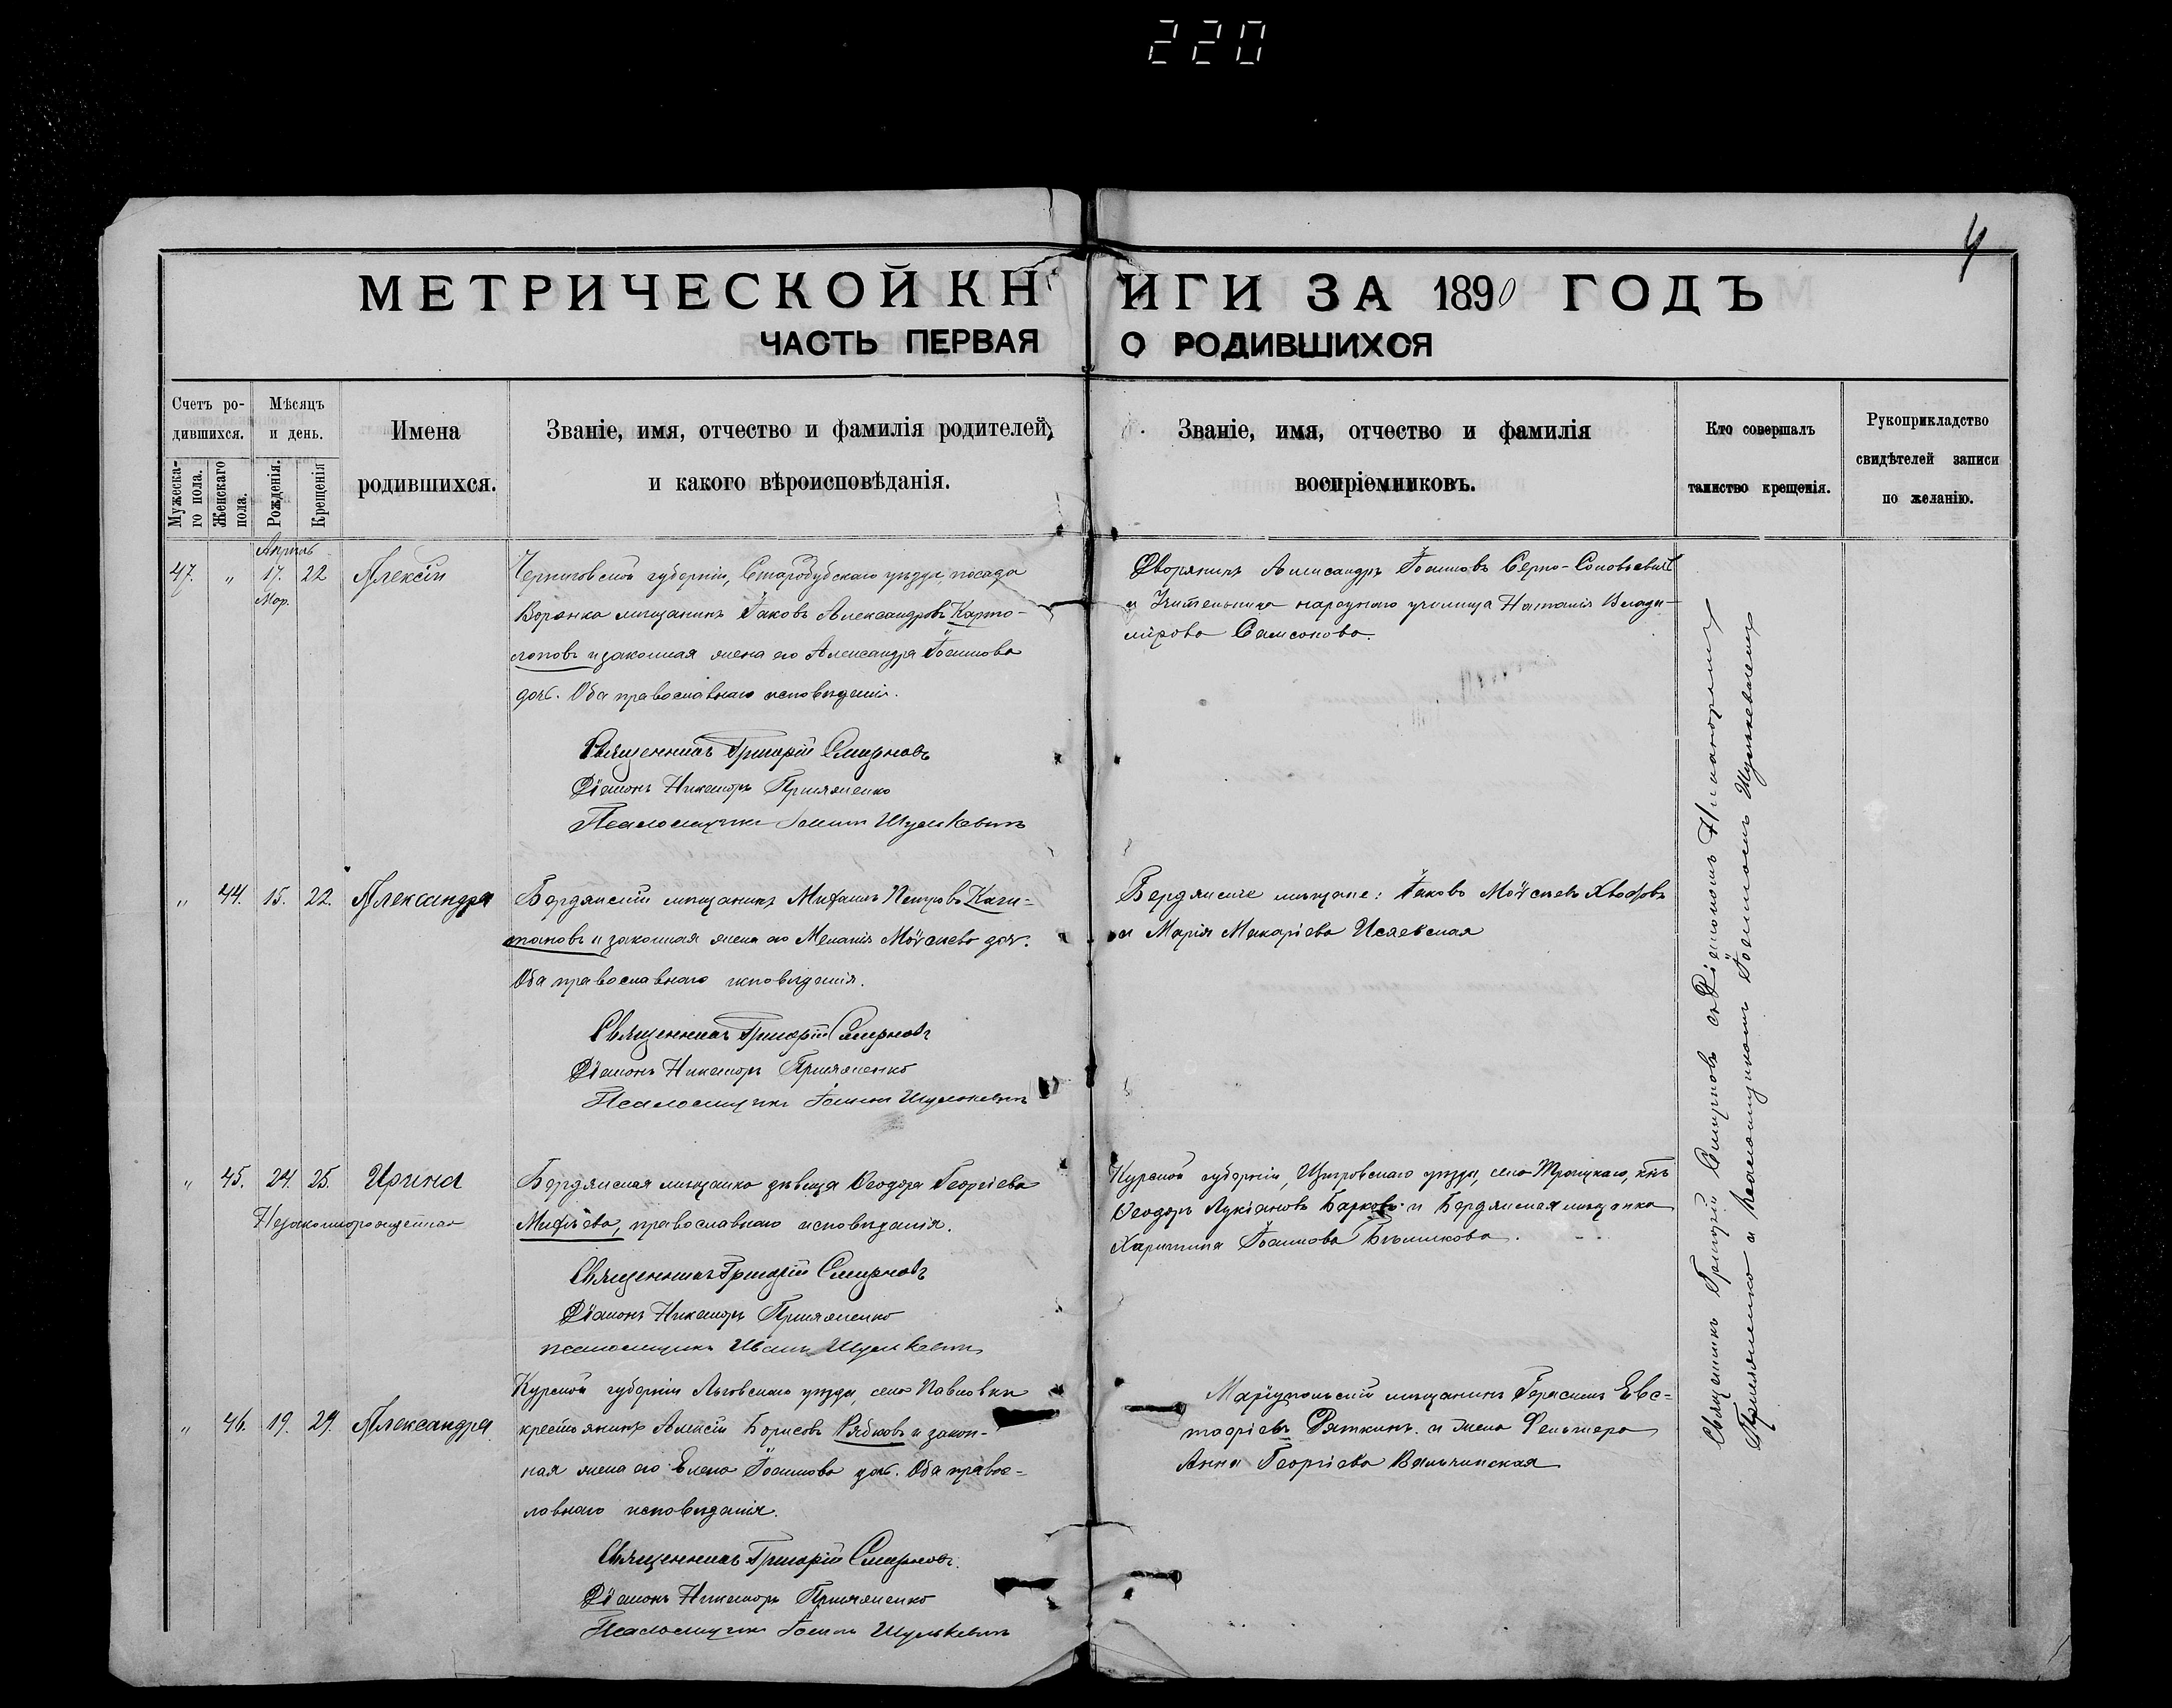 220
4
МЕТРИЧЕСКОЙ КНИГИ ЗА 1890 ГОДЪ
ЧАСТЬ ПЕРВАЯ О РОДИВШИХСЯ
Счетъ ро-
дившихся.
Мужеска-
го пола.
Женскаго
пола.
Мѣсяцъ
и день.
Рожденія.
Крещенія
Имена
родившихся.
Званіе, имя, отчество и фамилія родителей,
и какого вѣроисповѣданія.
Званіе, имя, отчество и фамилія
воспріемниковъ.
Кто совершалъ
таинство крещенія.
Рукоприкладство
свидѣтелей записи
по желанію.
Апрѣль
47. „ 17. 22 Алексій
Мар.
Черниговской губерніи, Стародубскаго уѣзда, посада
Воронка мѣщанинъ Іаковъ Александровъ Карто-
поповъ и законная жена его Александра Іоаннова
дочь. Оба православнаго исповѣданія.
Священникъ Григорій Смирновъ
Діаконъ Никаноръ
Псаломщикъ Іоаннъ Шулькевичъ
Дворянинъ Александръ Іоанновъ Серно-Соловьевичъ
и Учительница народнаго училища Наталія Влади-
мірова Самсонова.
„ 44. 15. 22. Александра
Бердянскій мѣщанинъ Митрофанъ Петровъ
и законная жена его Меланія Моѵсеева доч.
Оба православнаго исповѣданія.
Священникъ Григорій Смирновъ
Діаконъ Никаноръ
Псаломщикъ Іоаннъ Шулькевичъ
Бердянскіе мѣщане: Іаковъ Моѵсеевъ
и Марія Макаріева
„ 45. 24. 25. Ирина
Незаконнорожденная
Бердянская мѣщанка дѣвица Ѳеодора Георгіева
православнаго исповѣданія.
Священникъ Григорій Смирновъ
Діаконъ Никаноръ
псаломщикъ Иванъ Шулькевичъ
Курской губерніи, Щигровскаго уѣзда, села Троицкаго, кр-нъ
Ѳеодоръ Лукіановъ Барковъ и Бердянская мѣщанка
Харитина Іоаннова
„ 46. 19. 29. Александра
Курской губерніи Льговскаго уѣзда, села Павловки
крестьянинъ Алексій Борисовъ Рябковъ и закон-
ная жена его Елена Іоаннова дочь. Оба правос-
лавнаго исповѣданія.
Священникъ Григорій Смирновъ.
Діаконъ Никаноръ
Псаломщикъ Іоаннъ Шулькевичъ
Маріупольскій мѣщанинъ Герасимъ Евс-
тафіевъ Ряткинъ и жена Фельшера
Анна Георгіева Вальчинская
Священникъ Григорій Смирновъ съ Діакономъ Никаноромъ
и псаломщикомъ Іоанномъ Шулькевичемъ